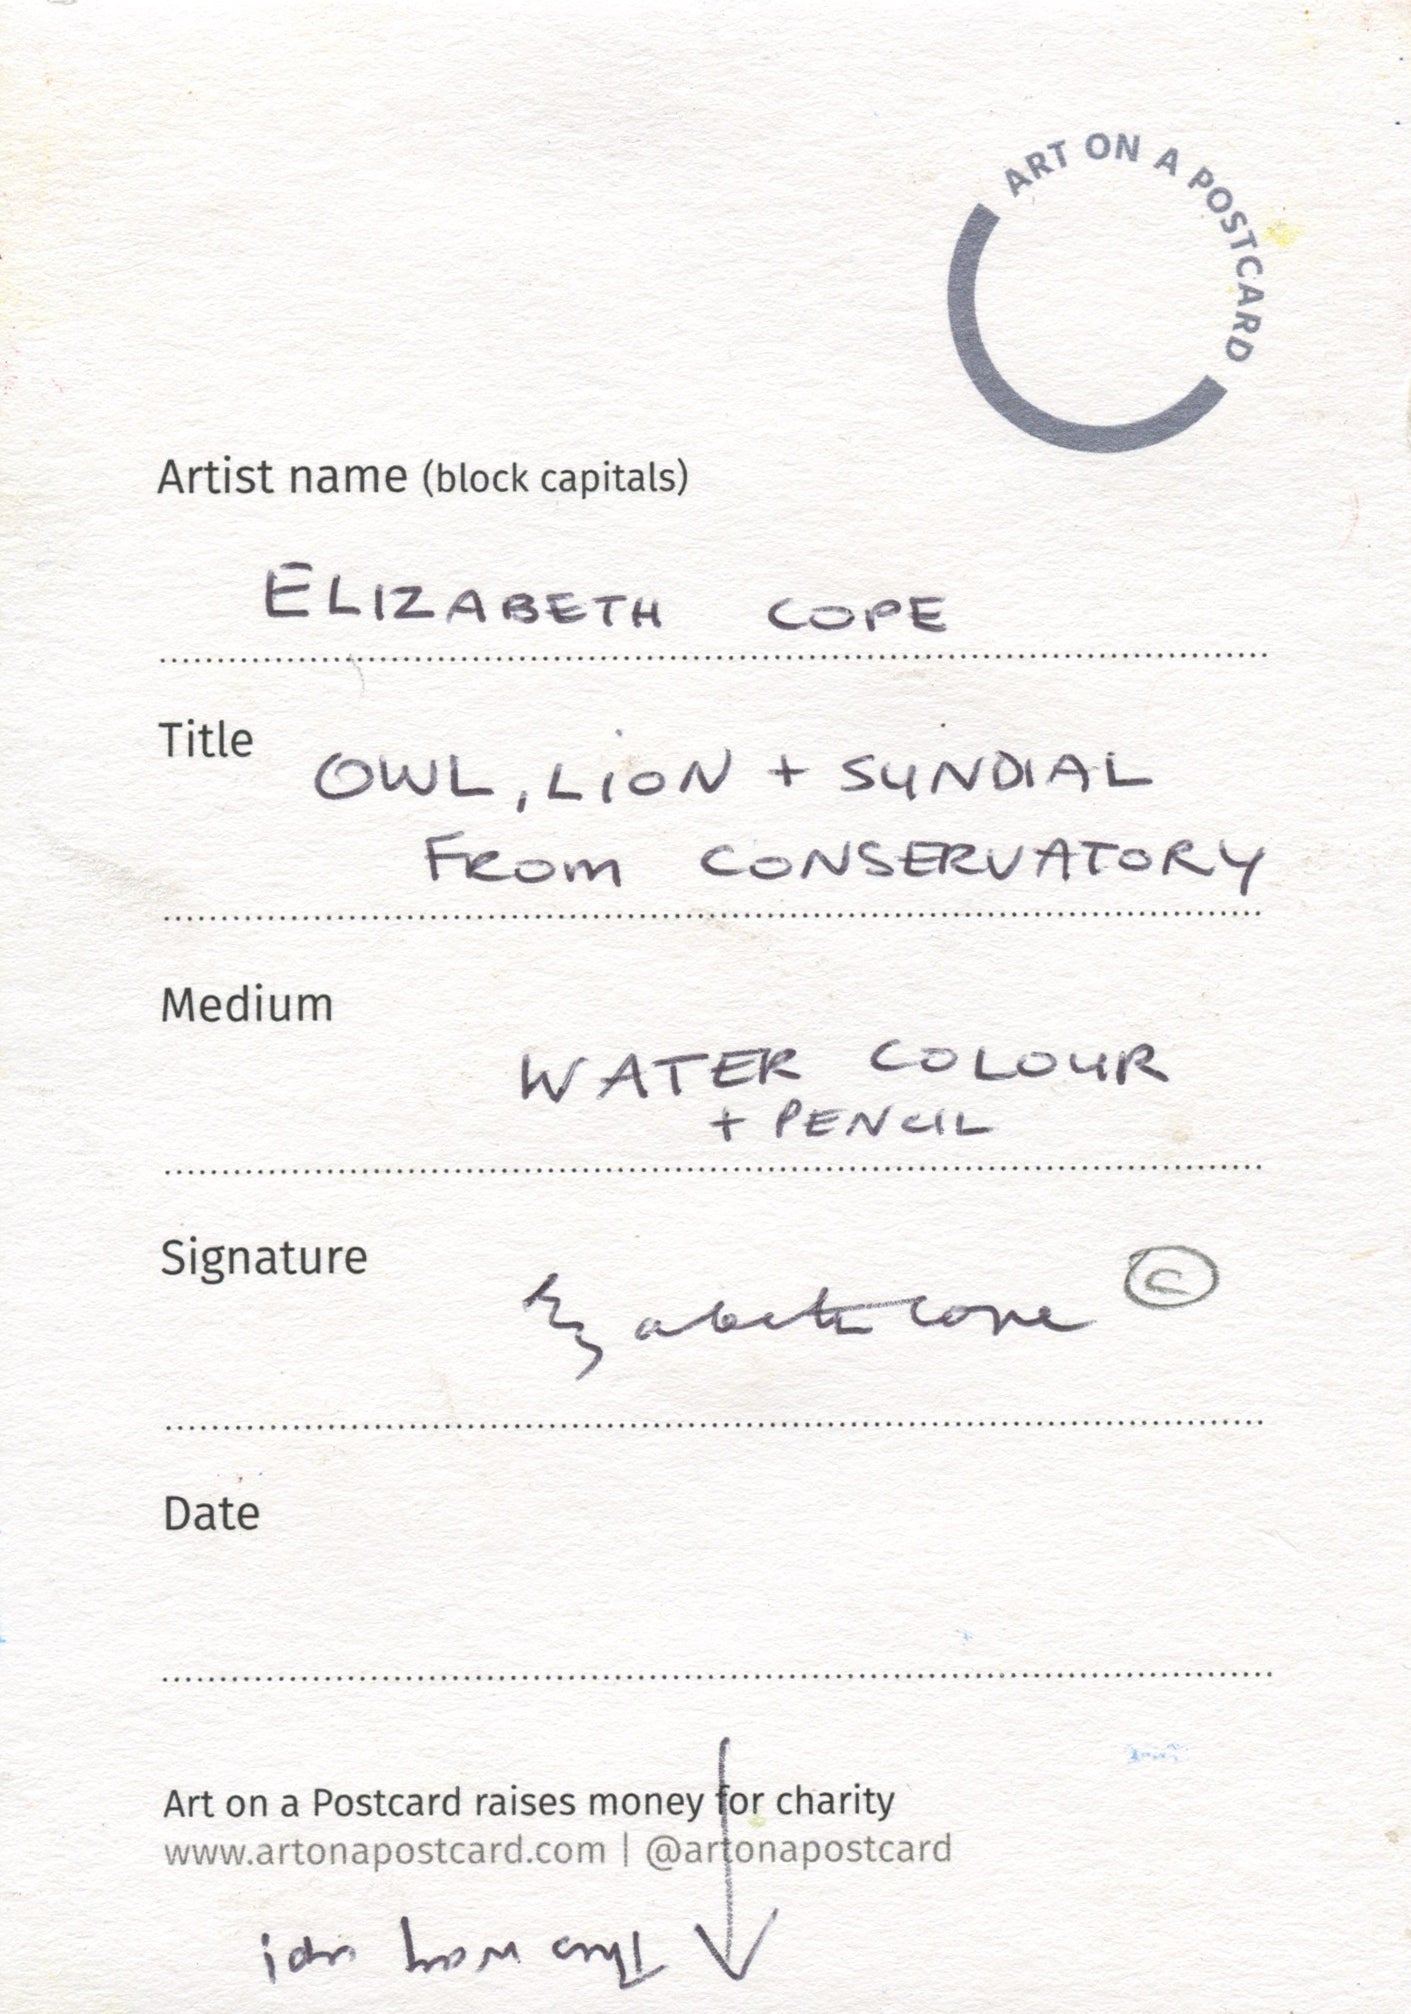 ART ON A POSTCARD
Artist name (block capitals)
ELIZABETH COPE
Title
OWL, LION + SUNDIAL
FROM CONSERVATORY
Medium
WATER COLOUR
+ PENCIL
Signature
Elizabeth Cope ©
Date
Art on a Postcard raises money for charity
www.artonapostcard.com | @artonapostcard
This way up!